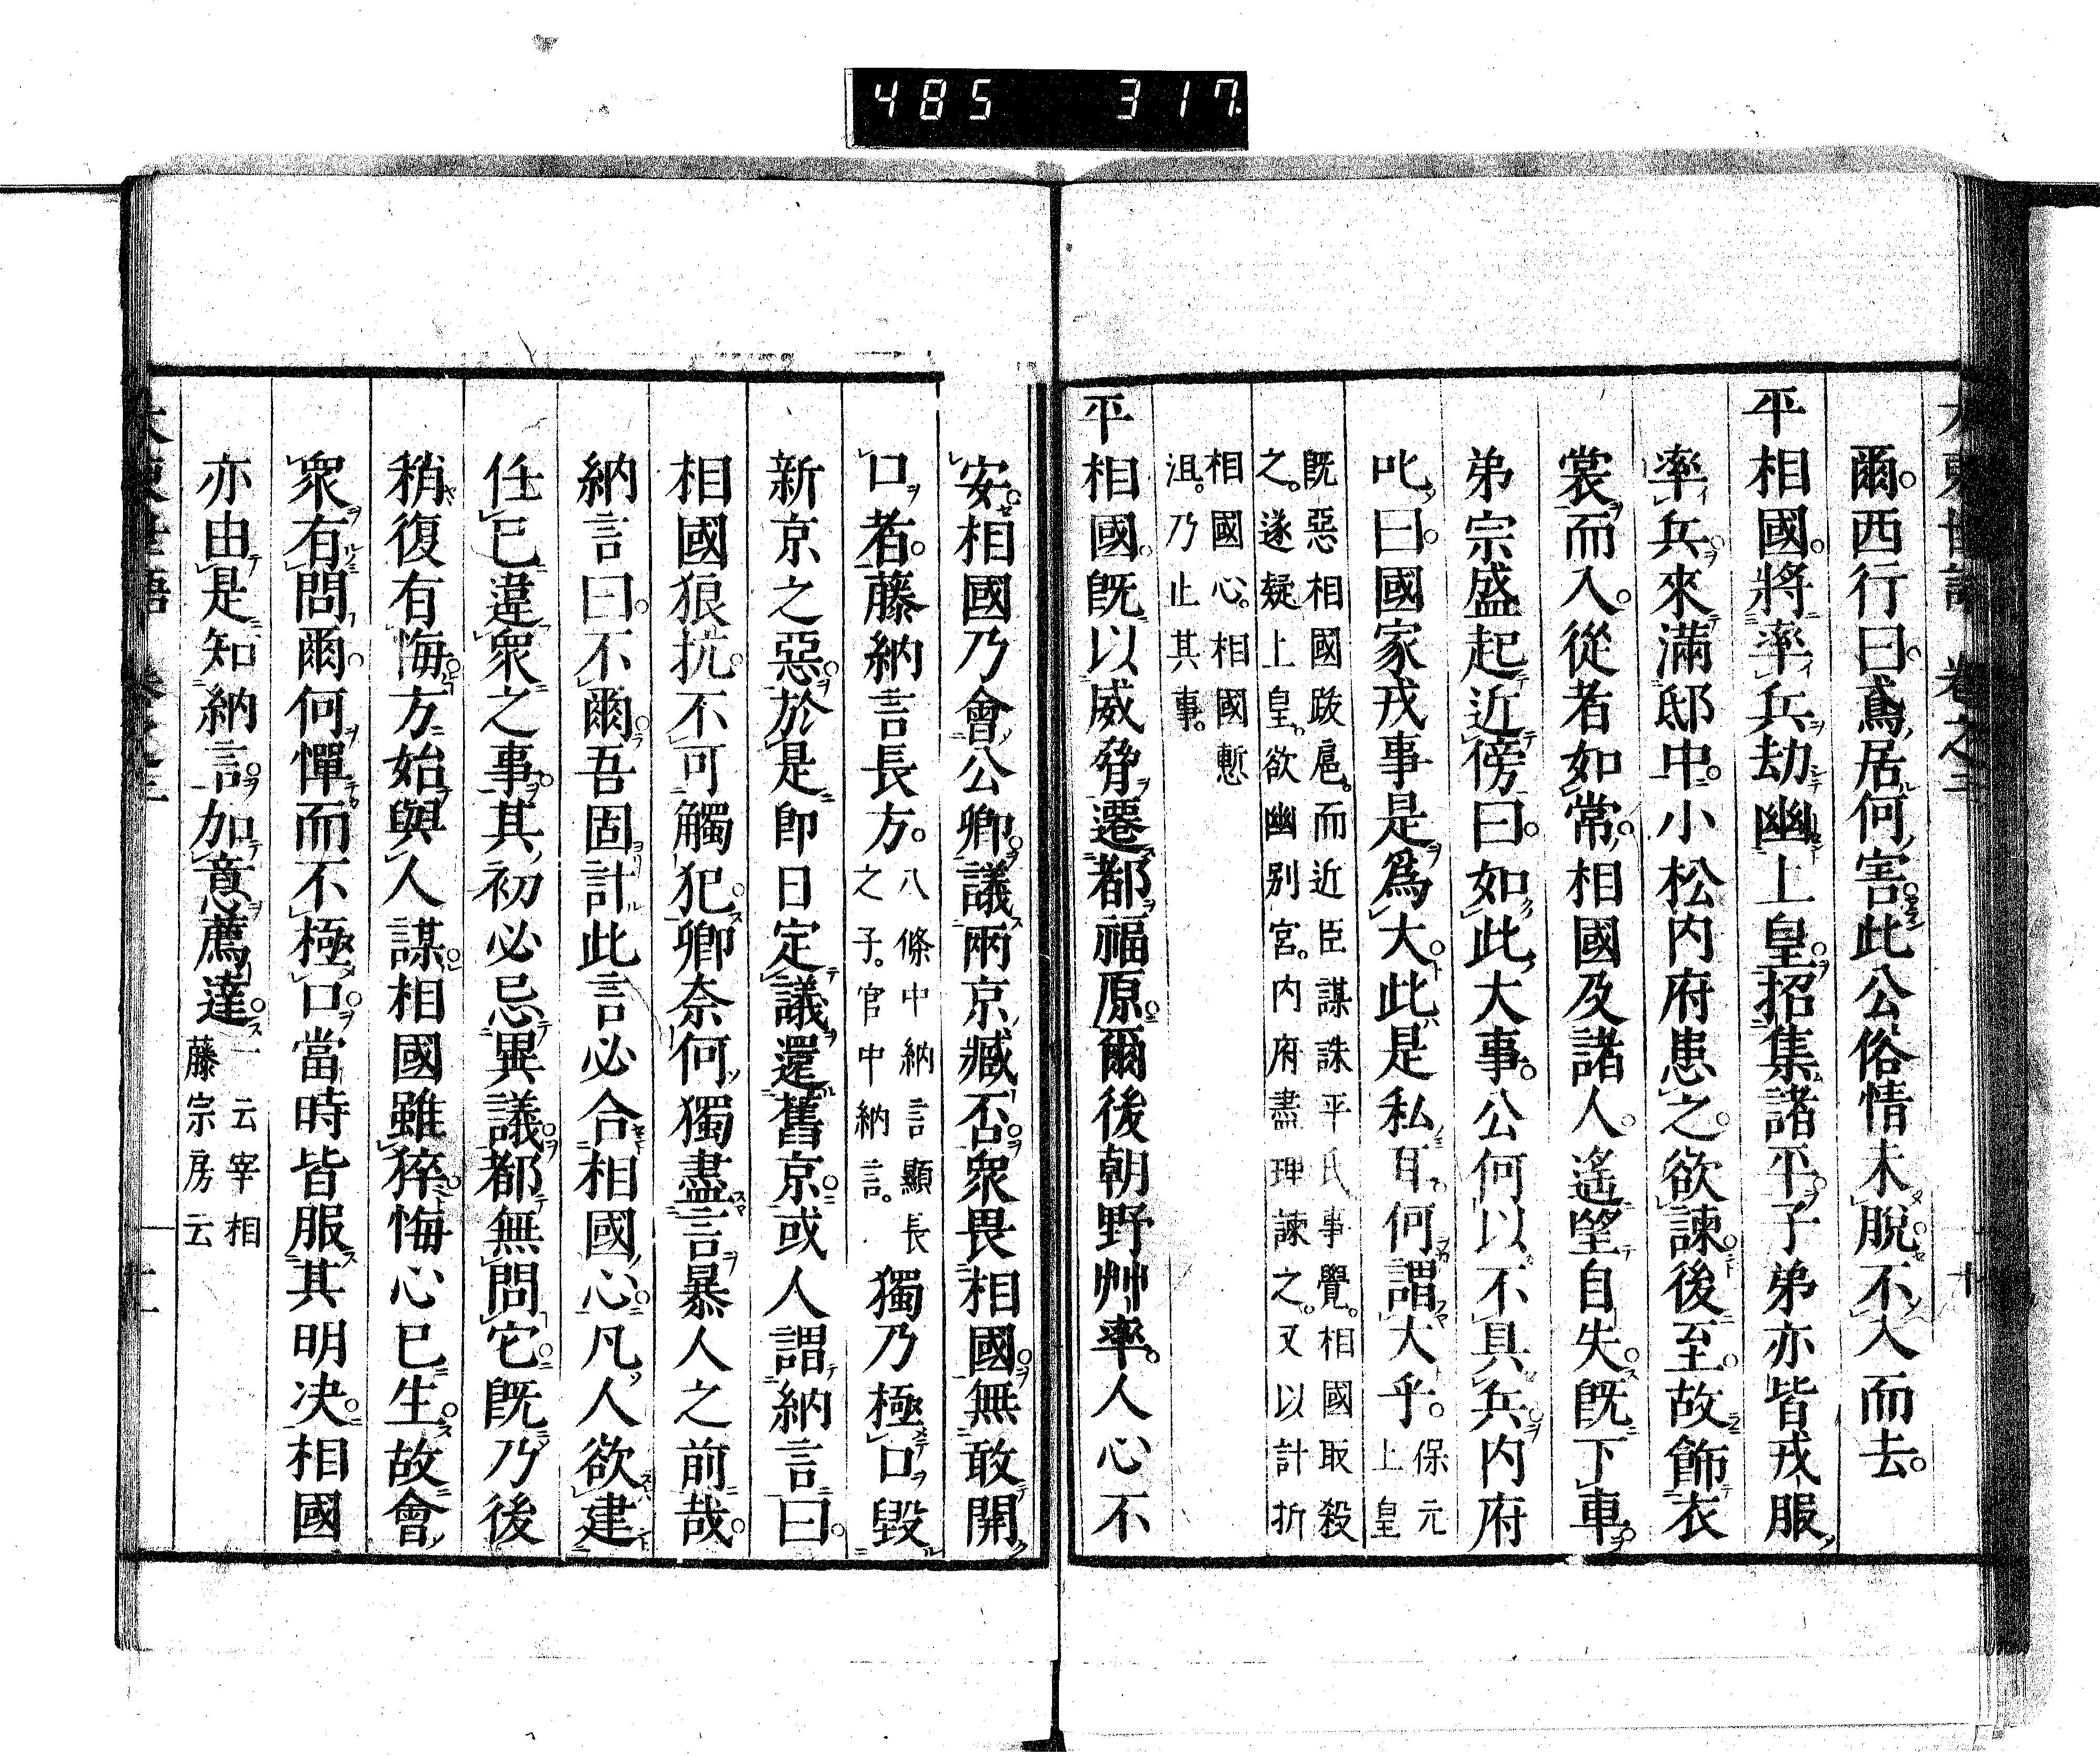 485 317
大東世語 卷之二 十
爾。西行曰。鳶居何害。此公俗情未脫。不入而去。
平相國。將率兵劫幽上皇。招集諸平。子弟亦皆戎服
率兵。來滿邸中。小松內府患之。欲諫。後至。故飾衣
裳而入。從者如常。相國及諸人。遙望自失。既下車。
弟宗盛起近傍曰。如此大事。公何以不具兵。內府
叱曰。國家戎事是爲大。此是私耳。何謂大乎。保元上皇
既惡相國跋扈。而近臣謀誅平氏事覺。相國取殺
之。遂疑上皇。欲幽別宮。內府盡理諫之。又以計折
相國心。相國慙
沮。乃止其事。
平相國。既以威脅遷都福原。爾後朝野艸率。人心不
安。相國乃會公卿。議兩京臧否。衆畏相國。無敢開
口者。藤納言長方。八條中納言顯長之子。官中納言。獨乃極口毀
新京之惡。於是即日定議還舊京。或人謂納言曰。
相國狼抗。不可觸犯。卿奈何獨盡言暴人之前哉。
納言曰。不爾。吾固計此言必合相國心。凡人欲建
任已違衆之事。其初必忌異議。都無問它。既乃後
稍復有悔。方始與人謀。相國雖猝。悔心已生。故會
衆有問爾。何憚而不極口。當時皆服其明决。相國
亦由是知納言。加意薦達。一云宰相藤宗房云
大東世語 卷之二